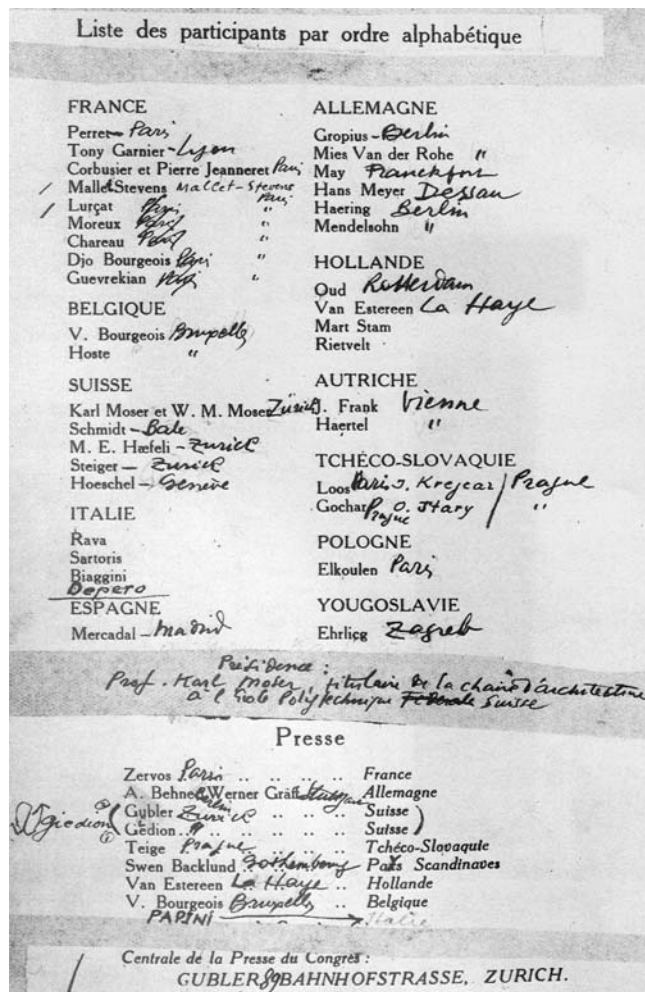 Liste des participants par ordre alphabétique
FRANCE
Perret - Paris
Tony Garnier - Lyon
Corbusier et Pierre Jeanneret Paris
Mallet Stevens Mallet-Stevens Paris
Lurçat Paris "
Moreux Paris "
Chareau Paris "
Djo Bourgeois Paris "
Guevrekian Paris "
BELGIQUE
V. Bourgeois Bruxelles
Hoste "
SUISSE
Karl Moser et W. M. Moser Zürich
Schmidt - Bale
M. E. Hæfeli - Zurich
Steiger - Zurich
Hoeschel - Genève
ITALIE
Rava
Sartoris
Biaggini
Depero
ESPAGNE
Mercadal - Madrid
ALLEMAGNE
Gropius - Berlin
Mies Van der Rohe "
May Franckfort
Hans Meyer Dessau
Haering Berlin
Mendelsohn "
HOLLANDE
Oud Rotterdam
Van Estereen La Haye
Mart Stam
Rietvelt
AUTRICHE
J. Frank Vienne
Haertel "
TCHÉCO-SLOVAQUIE
Loos Paris J. Krejcar / Prague
Gochar Prague O. Stary / "
POLOGNE
Elkoulen Paris
YOUGOSLAVIE
Ehrlicg Zagreb
Présidence :
Prof. Karl Moser, titulaire de la chaire d'architecture
à l'Ecole Polytechnique Féderale Suisse
Presse
Zervos Paris .. .. .. .. France
A. Behne Berlin Werner Gräff Stuttgart Allemagne
Gubler Zurich .. .. .. Suisse
Dr Giedion Gédion .. " .. .. .. Suisse
Teige Prague .. .. .. Tchéco-Slovaquie
Swen Backlund Gothembourg Pays Scandinaves
Van Estereen La Haye .. Hollande
V. Bourgeois Bruxelles .. Belgique
PAPINI Italie
Centrale de la Presse du Congrès :
GUBLER 89 BAHNHOFSTRASSE, ZURICH.